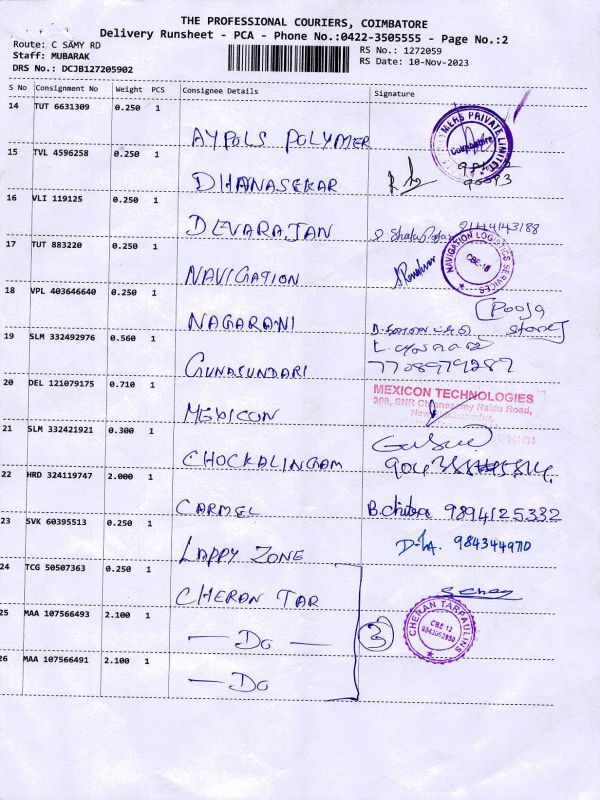 THE PROFESSIONAL COURIERS, COIMBATORE
Delivery Runsheet - PCA - Phone No.:0422-3505555 - Page No.:2
Route: C SAMY RD
RS No.: 1272059
Staff: MUBARAK
RS Date: 10-Nov-2023
DRS No.: DCJB127205902
S No Consignment No Weight PCS Consignee Details Signature
14 TUT 6631309 0.250 1
AYPOLS POLYMER
MERS PRIVATE LIMITED
Coimbatore
15 TVL 4596258 0.250 1
DHANASEKAR
16 VLI 119125 0.250 1
DEVARAJAN
17 TUT 883220 0.250 1
NAVIGATION
NAVIGATION LOGISTICS SERVICES
CBE-18
18 VPL 403646640 0.250 1
NAGARANI
Pooja
Store
19 SLM 332492976 0.560 1
GUNASUNDARI
7708979287
20 DEL 121079175 0.710 1
MEXICON
MEXICON TECHNOLOGIES
309, SNR Chinnasamy Naidu Road,
21 SLM 332421921 0.300 1
CHOCKALINGAM
22 HRD 324119747 2.000 1
CARMEL B.chitra 9894125332
23 SVK 60395513 0.250 1
LAPPY ZONE 9843449710
24 TCG 50507363 0.250 1
CHERAN TAR
CHERAN TARPAULINS
CBE-12
25 MAA 107566493 2.100 1
— DO — 3
26 MAA 107566491 2.100 1
— DO